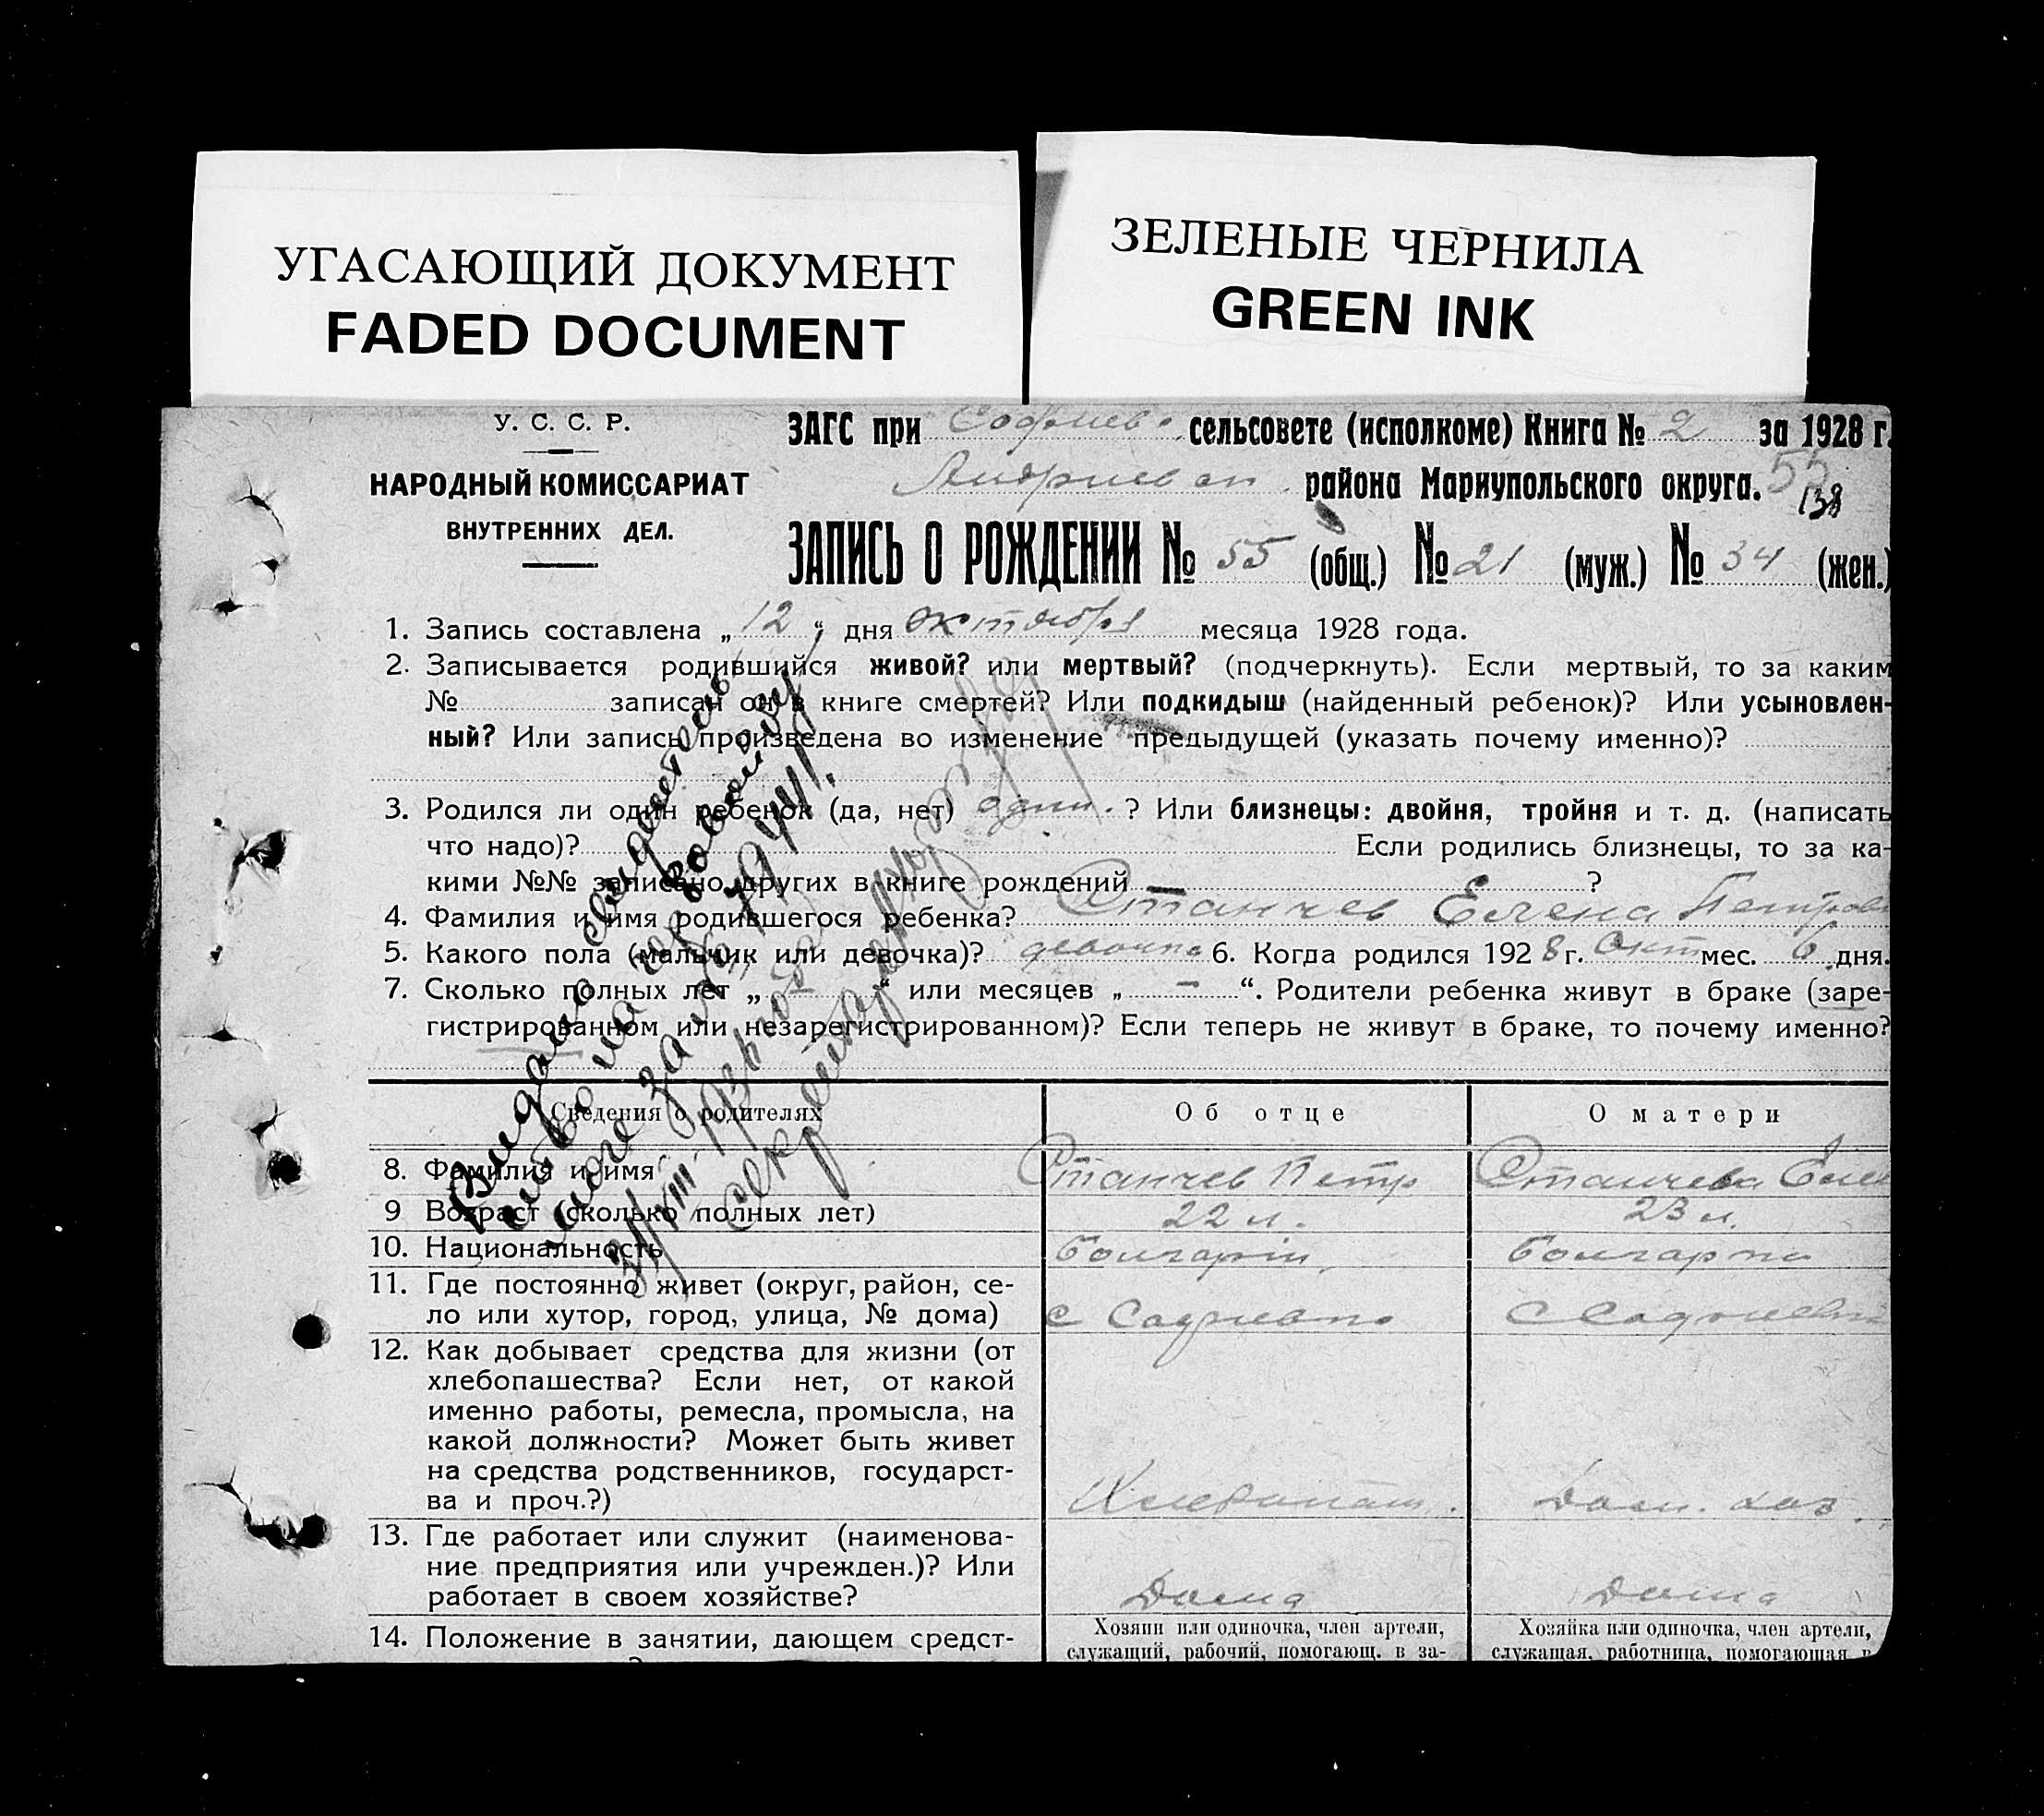 УГАСАЮЩИЙ ДОКУМЕНТ
FADED DOCUMENT
ЗЕЛЕНЫЕ ЧЕРНИЛА
GREEN INK
У. С. С. Р.
НАРОДНЫЙ КОМИССАРИАТ
ВНУТРЕННИХ ДЕЛ.
ЗАГС при Софиев. сельсовете (исполкоме) Книга № 2 за 1928 г.
района Мариупольского округа. 55
138
ЗАПИСЬ О РОЖДЕНИИ № 55 (общ.) № 21 (муж.) № 34 (жен.)
1. Запись составлена „12“ дня октября месяца 1928 года.
2. Записывается родившийся живой? или мертвый? (подчеркнуть). Если мертвый, то за каким
№ записан он в книге смертей? Или подкидыш (найденный ребенок)? Или усыновлен-
ный? Или запись произведена во изменение предыдущей (указать почему именно)?
3. Родился ли один ребенок (да, нет) один. ? Или близнецы: двойня, тройня и т. д. (написать
что надо)? Если родились близнецы, то за ка-
кими №№ записано других в книге рождений — ?
4. Фамилия и имя родившегося ребенка? Станчев Елена Петров
5. Какого пола (мальчик или девочка)? девочка 6. Когда родился 1928 г. Окт мес. 6 дня.
7. Сколько полных лет „ — “ или месяцев „ — “. Родители ребенка живут в браке (заре-
гистрированном или незарегистрированном)? Если теперь не живут в браке, то почему именно?
Сведения о родителях
Об отце
О матери
8. Фамилия и имя
Станчев Петр
Станчева Еле
9 Возраст (сколько полных лет)
22 л.
23 л.
10. Национальность
болгарин
болгарка
11. Где постоянно живет (округ, район, се-
ло или хутор, город, улица, № дома)
с Софиевка
с Софиевка
12. Как добывает средства для жизни (от
хлебопашества? Если нет, от какой
именно работы, ремесла, промысла, на
какой должности? Может быть живет
на средства родственников, государст-
ва и проч.?)
Хлебопаш.
Дом. хоз.
13. Где работает или служит (наименова-
ние предприятия или учрежден.)? Или
работает в своем хозяйстве?
Дома
Дома
14. Положение в занятии, дающем средст-
Хозяин или одиночка, член артели,
служащий, рабочий, помогающ. в за-
Хозяйка или одиночка, член артели,
служащая, работница, помогающая в